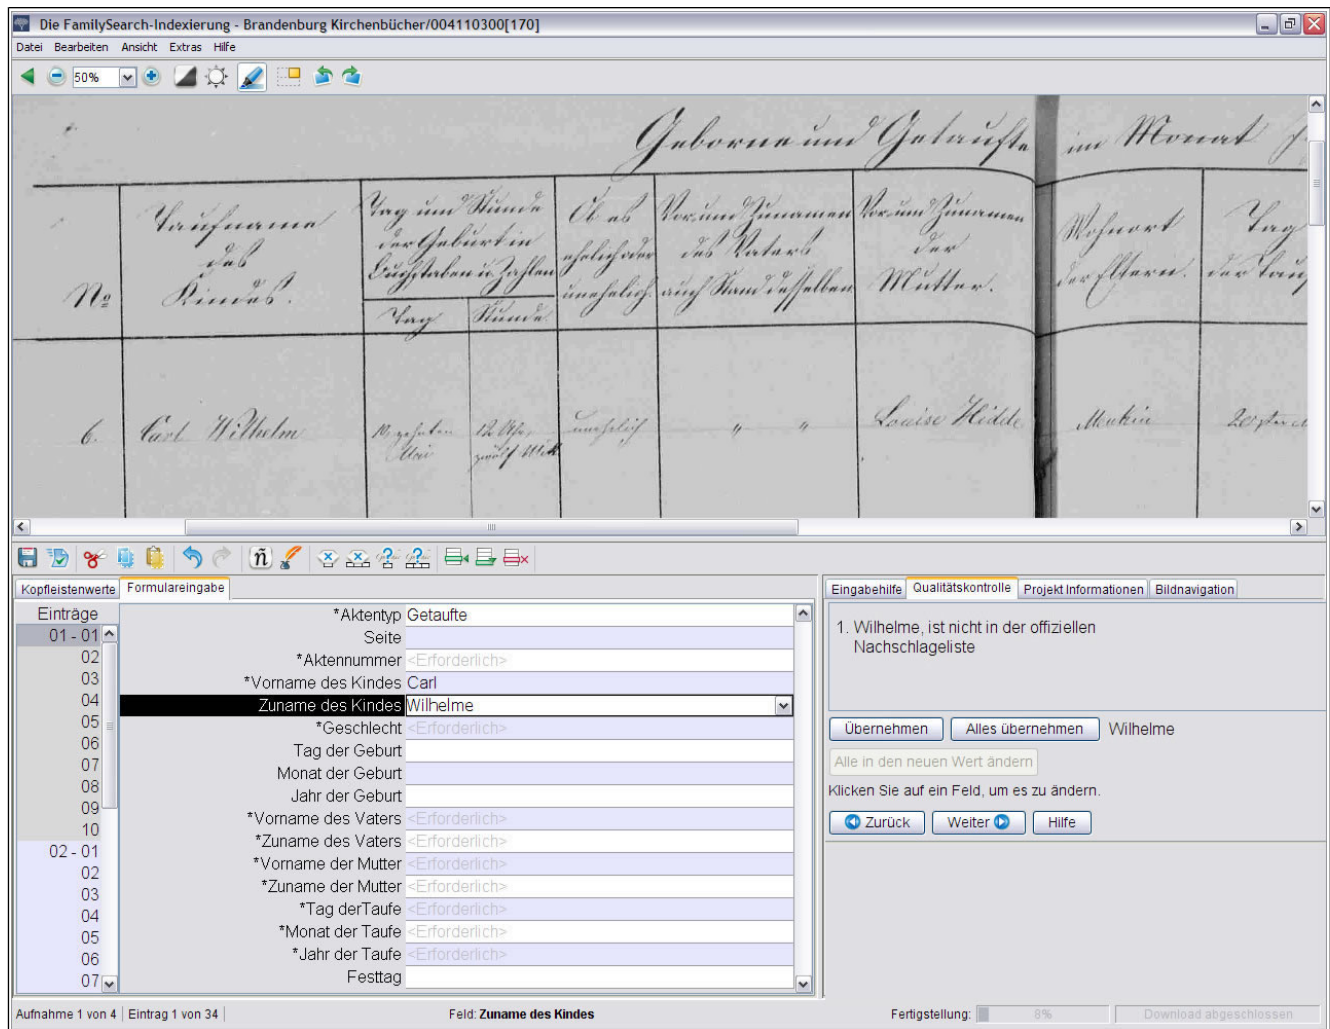 Die FamilySearch-Indexierung - Brandenburg Kirchenbücher/004110300[170]
Datei Bearbeiten Ansicht Extras Hilfe
50%
Geborne und Getaufte im Monat
No
Taufname
des
Kindes.
Tag und Stunde
der Geburt in
Buchstaben u. Zahlen
Tag
Stunde
Ob es
ehelich oder
unehelich
Vor und Zunamen
des Vaters
auch Stand desselben
Vor und Zunamen
der
Mutter.
Wohnort
der Eltern.
Tag
der Tauf
6.
Carl Wilhelm
10, zehnten
Mai
12 Uhr,
zwölf Mitt
unehelich
" "
Louise Hidde
Menkin
Kopfleistenwerte Formulareingabe
Einträge
01 - 01
02
03
04
05
06
07
08
09
10
02 - 01
02
03
04
05
06
07
*Aktentyp Getaufte
Seite
*Aktennummer <Erforderlich>
*Vorname des Kindes Carl
Zuname des Kindes Wilhelme
*Geschlecht <Erforderlich>
Tag der Geburt
Monat der Geburt
Jahr der Geburt
*Vorname des Vaters <Erforderlich>
*Zuname des Vaters <Erforderlich>
*Vorname der Mutter <Erforderlich>
*Zuname der Mutter <Erforderlich>
*Tag derTaufe <Erforderlich>
*Monat der Taufe <Erforderlich>
*Jahr der Taufe <Erforderlich>
Festtag
Eingabehilfe Qualitätskontrolle Projekt Informationen Bildnavigation
1. Wilhelme, ist nicht in der offiziellen
Nachschlageliste
Übernehmen Alles übernehmen Wilhelme
Alle in den neuen Wert ändern
Klicken Sie auf ein Feld, um es zu ändern.
Zurück Weiter Hilfe
Aufnahme 1 von 4 Eintrag 1 von 34 Feld: Zuname des Kindes Fertigstellung: 8% Download abgeschlossen